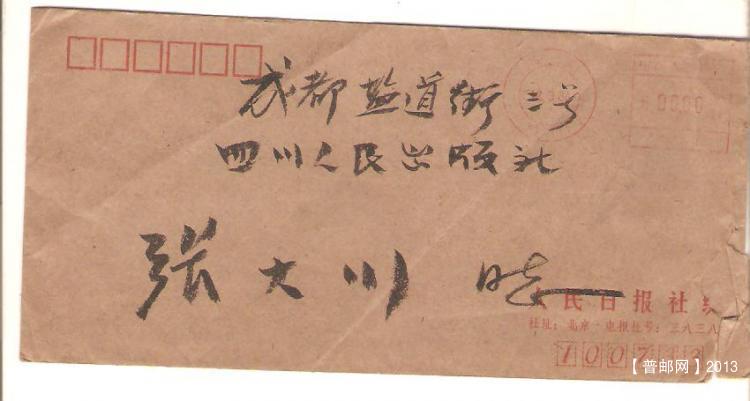 成都盐道街三号
四川人民出版社
张大川
人民日报社
社址：北京 电报挂号：三八三八
100733
【普邮网】2013